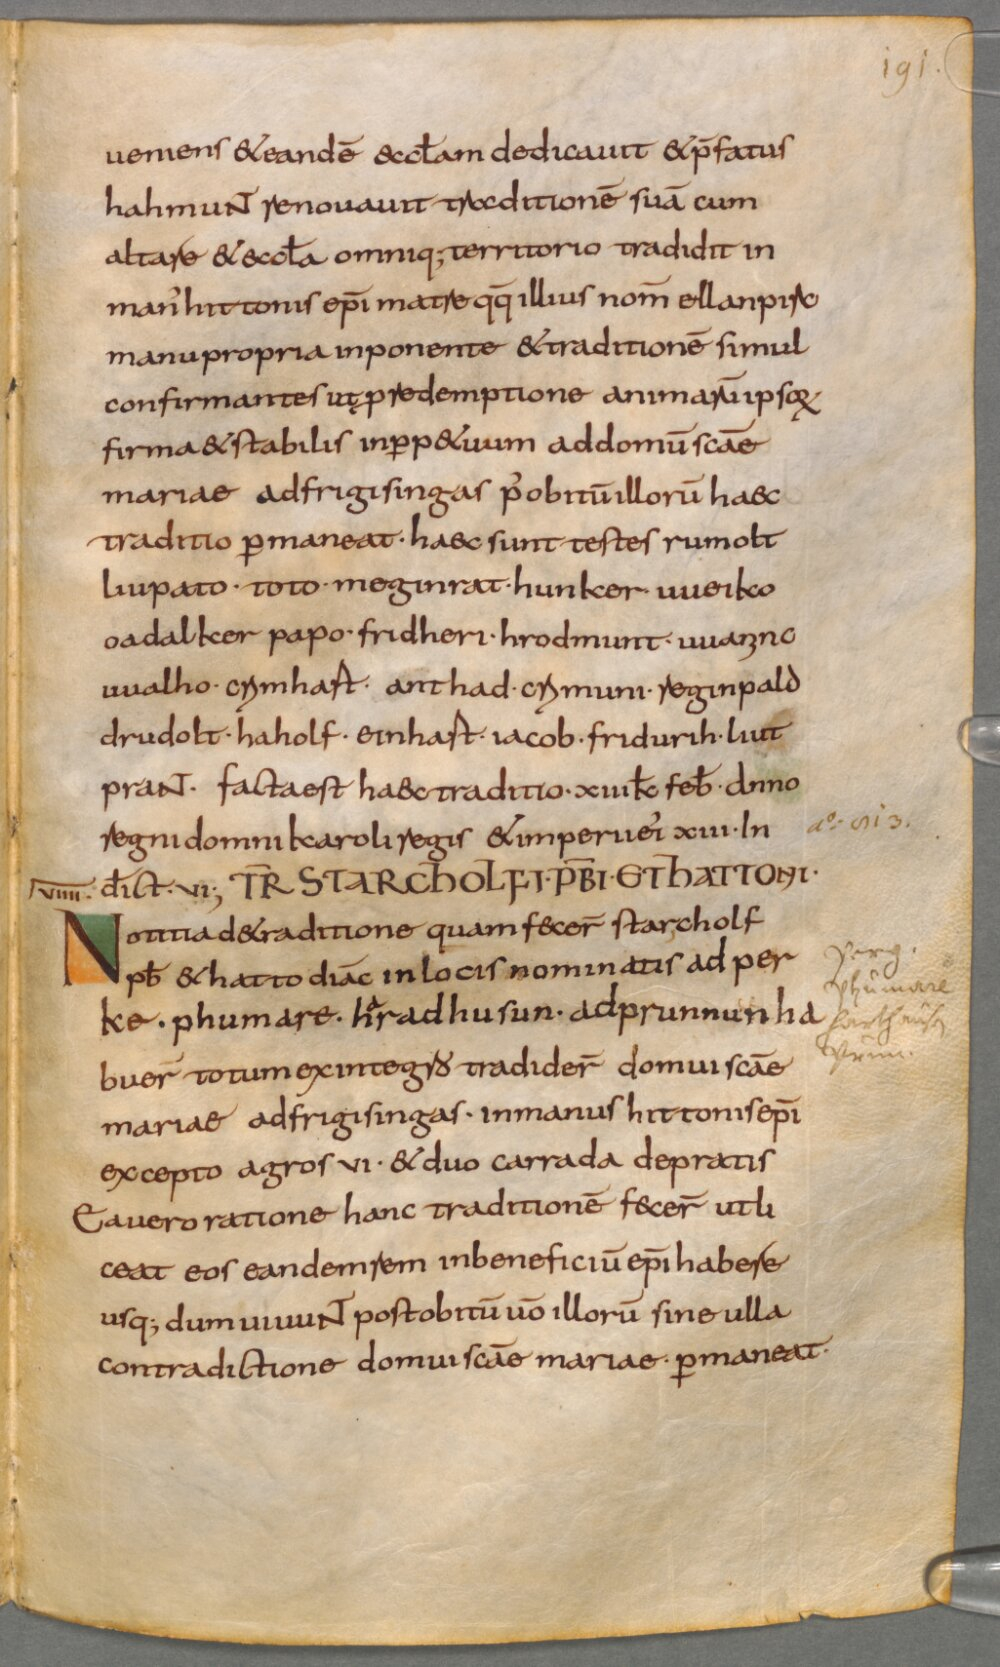 191.
ueniens &eandē &ccl̄am dedicauit &p̄fatus
hahmuNT renouauit traditionē suā cum
altare & &ccl̄a omniq; territorio tradidit in
man' hittonis ep̄i matre qq̄ illius nom̄ ellanpirc
manu propria inponente & traditionē simul
confirmantes ut p redemptione animarū ipsoꝝ
firma & stabilis in ꝑp&uum ad domū scāe
mariae ad frigisingas p' obitū illorū haec
traditio ꝑmaneat · haec sunt testes rumolt
liupato · toto · meginrat · hunker · uueiko
oadalker papo · fridheri · hrodmunt · uuanc
uualho · crimhaft · anthad · crimuni · reginpald
drudolt · haholf · einhaft · iacob · fridurih · liut
praNT · facta est haec traditio · xuii kł feb̄ · anno
regni domni karoli regis & imperii ei' xiii · In
a° 813.
viiii · dict · vi; TR̄ STARCHOLFI · P̄BI · ET hATTONI ·
Notitia de traditione quam fecer̄ starcholf
pb̄ & hatto diac̄ in locis nominatis ad per
ke · phumare · hradhusun · ad prunnun ha
Perg.
Phumare
Prun.
buer̄ totum ex integro tradider̄ domui scāe
mariae ad frigisingas · in manus hittonis ep̄i
excepto agros vi · & duo carrada de pratis
Ea uero ratione hanc traditionē fecer̄ ut li
ceat eos eandem rem in beneficiū ep̄i habere
usq; dum uiuuNT post obitū uō illorū sine ulla
contradictione domui scāe mariae · ꝑmaneat ·